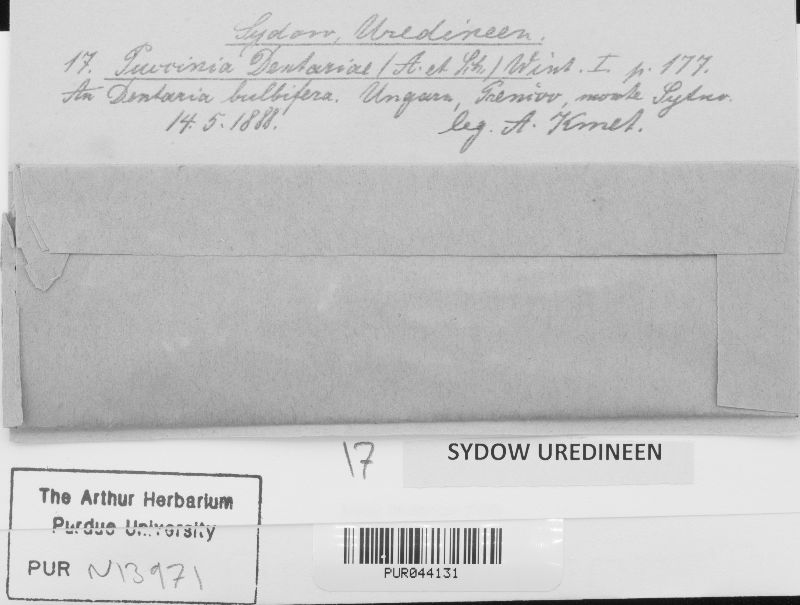 Sydow, Uredineen.
17. Puccinia Dentariae (A. et Sch.) Wint. I. p. 177.
An Dentaria bulbifera. Ungarn, Prencow, monte Sytno.
14. 5. 1888. leg. A. Kmet.
17
SYDOW UREDINEEN
The Arthur Herbarium
Purdue University
PUR N13971
PUR044131